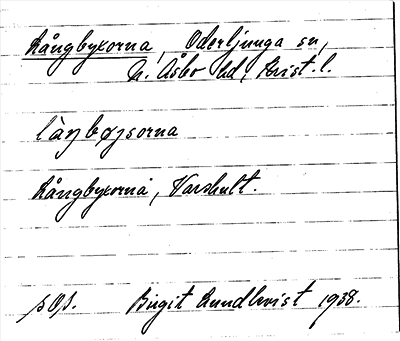 Långbyxorna, Oderljunga sn,
N. Åsbo hd, Krist. l.
làŋbøỵsorna
Långbyxorna, Varshult.
s. 0 f.
Birgit Lundkvist 1938.